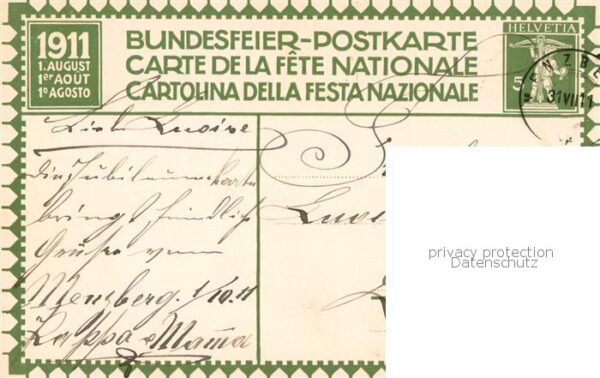 1911
1. AUGUST
1er AOUT
1o AGOSTO
BUNDESFEIER-POSTKARTE
CARTE DE LA FÊTE NATIONALE
CARTOLINA DELLA FESTA NAZIONALE
HELVETIA
5
ENZBE
31 VII 11
Lieb Luoise
die Jubiläumskarte
bringt freundlich
Grüße vom
Menzberg. 1/10.11
Pappa & Mama
Luois
privacy protection
Datenschutz